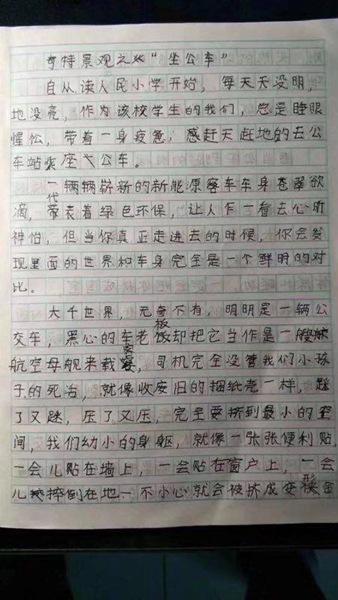 奇特景观之“坐公车”
自从读人民小学开始，每天天没明，
地没亮，作为该校学生的我们，总是睡眼
惺忪，带着一身疲惫，感赶天赶地的去公
车站乘座大公车。
一辆辆崭新的新能源客车车身苍翠欲
滴，代表着绿色环保，让人乍一看去心旷
神怡，但当你真正走进去的时候，你会发
现里面的世界和车身完全是一个鲜明的对
比。
大千世界，无奇不有，明明是一辆公
交车，黑心的车老板却把它当作是一艘
航空母舰来载客，司机完全没管我们小孩
子的死活，就像收废旧的捆纸壳一样，踩
了又踩，压了又压，完全要挤到最小的空
间，我们幼小的身躯，就像一张张便利贴，
一会儿贴在墙上，一会贴在窗户上，一会
儿摔倒在地一不小心就会被挤成变形金